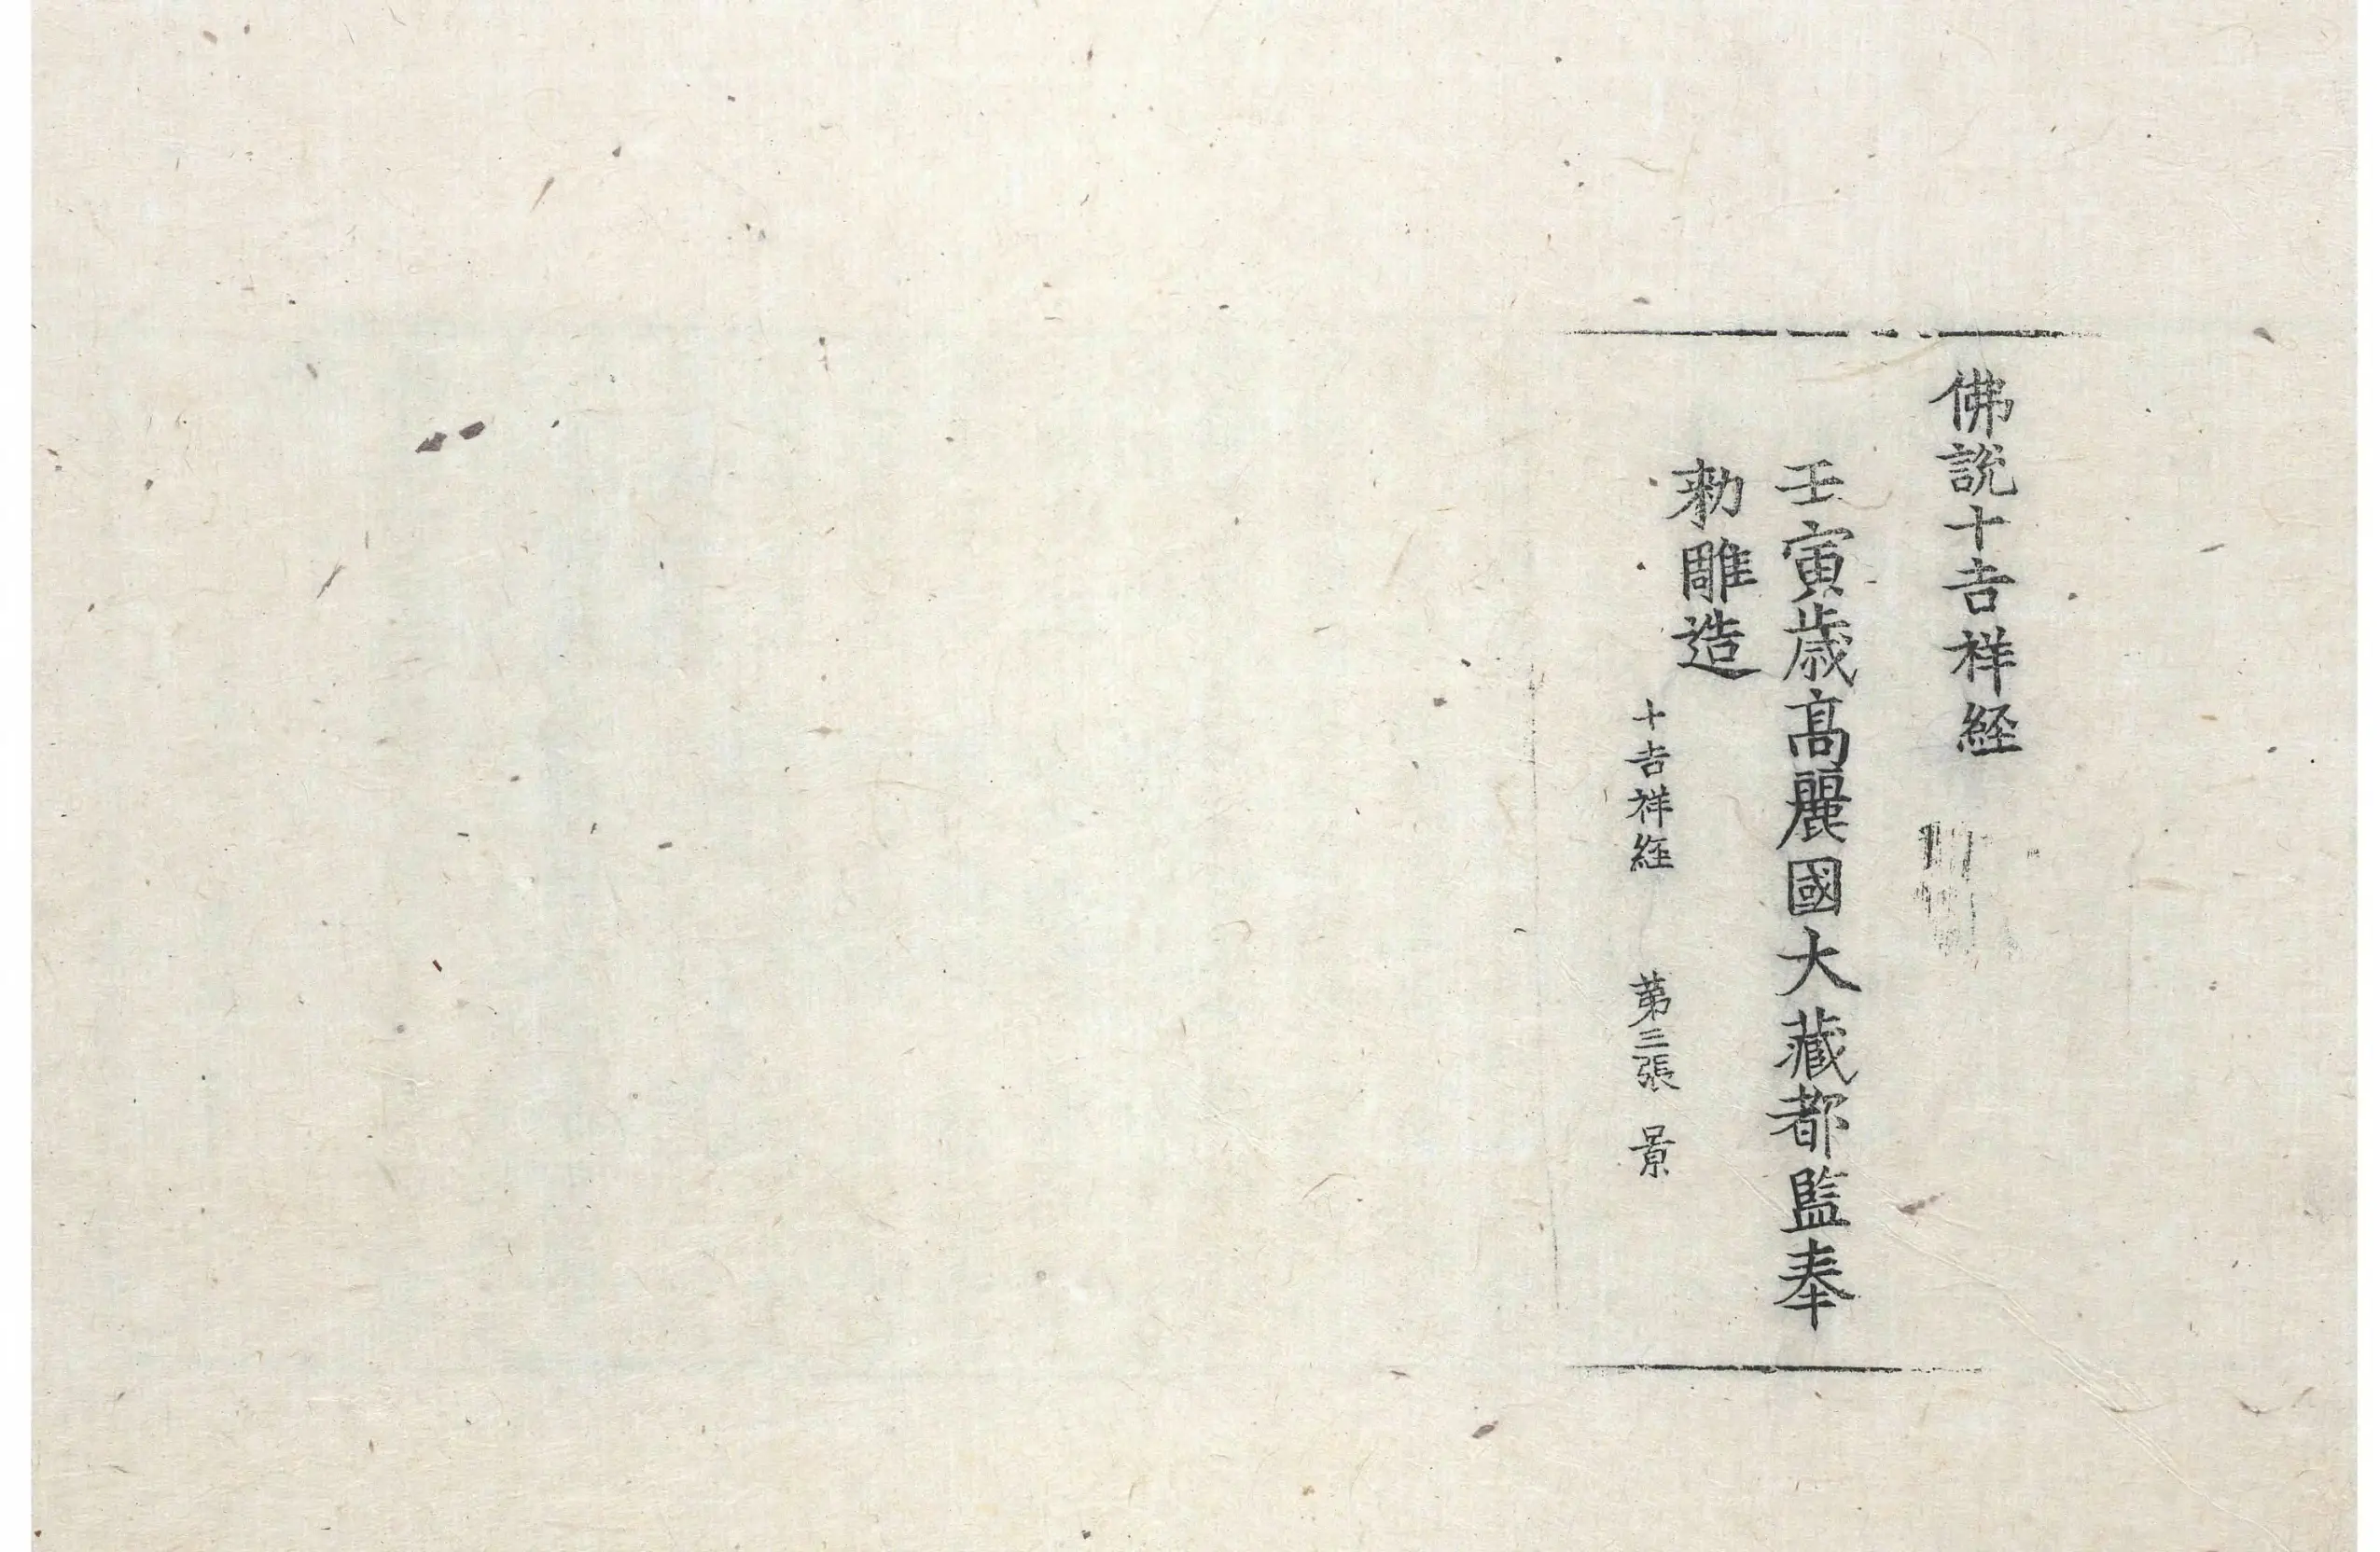 佛說十吉祥経
壬寅歳高麗國大藏都監奉
勑雕造
十吉祥経 第三張 景